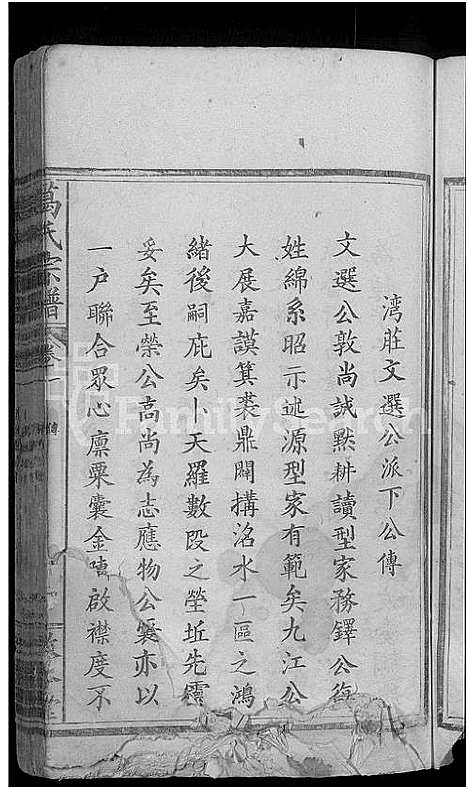 湾莊文選公派下公傳
文選公敦尚誠默耕讀型家務鐸公復
姓綿系昭示述源型家有範矣九江公
大展嘉謨箕裘鼎闢搆洺水一區之鴻
緒後嗣庇矣卜天羅數段之塋坵先靈
妥矣至榮公高尚為志應物公襄亦以
一户聯合眾心廪粟囊金啟襟度不
萬氏宗譜 卷一 傳
FamilySearch